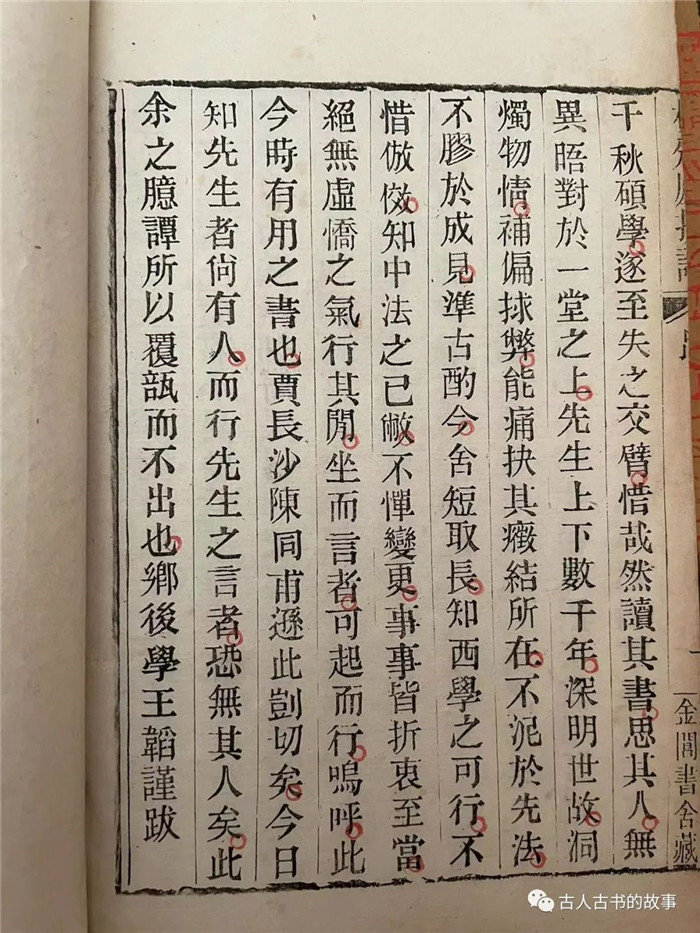 金閶書舍藏
千秋碩學遂至失之交臂惜哉然讀其書思其人無
異晤對於一堂之上先生上下數千年深明世故洞
燭物情補偏捄弊能痛抉其癥結所在不泥於先法
不膠於成見準古酌今舍短取長知西學之可行不
惜倣傚知中法之已敝不憚變更事事皆折衷至當
絕無虛憍之氣行其閒坐而言者可起而行嗚呼此
今時有用之書也賈長沙陳同甫遜此剴切矣今日
知先生者尙有人而行先生之言者恐無其人矣此
余之臆譚所以覆瓿而不出也鄉後學王韜謹跋
古人古书的故事